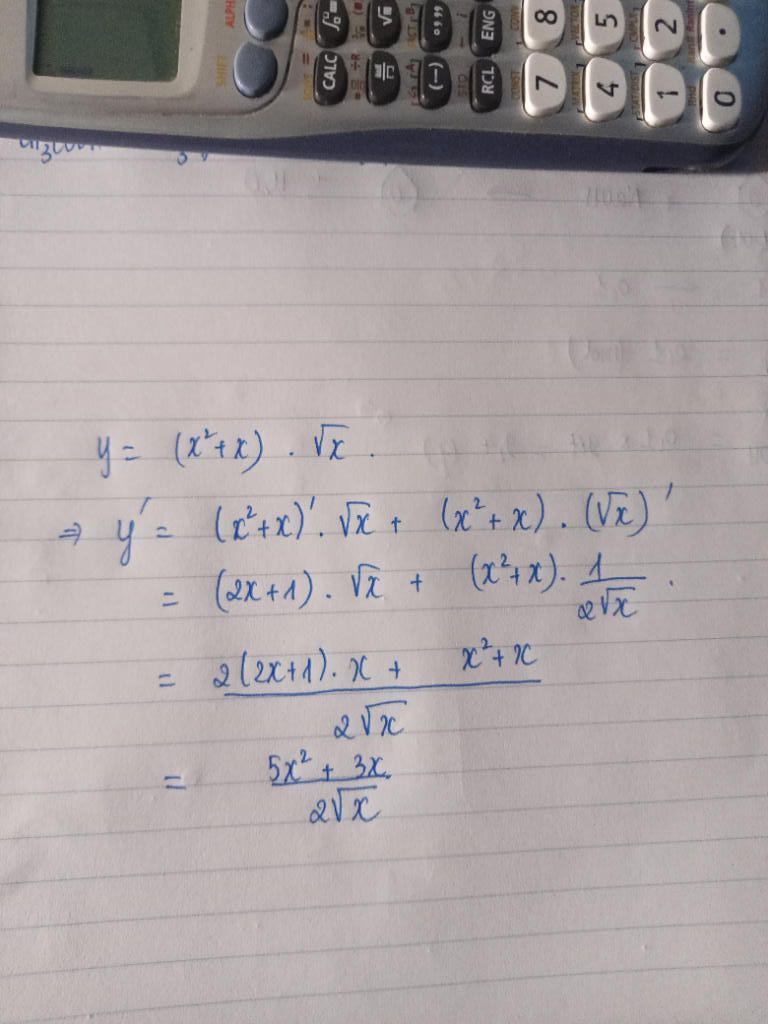 ALPH
SHIFT
CALC
(-)
°,,,
RCL
ENG
7
8
4
5
1
2
0
.
y = (x²+x) . √x .
⇒ y' = (x²+x)' . √x + (x²+x) . (√x)'
= (2x+1) . √x + (x²+x) . 1/(2√x) .
= (2(2x+1) . x + x²+x)/(2√x)
= (5x² + 3x)/(2√x)